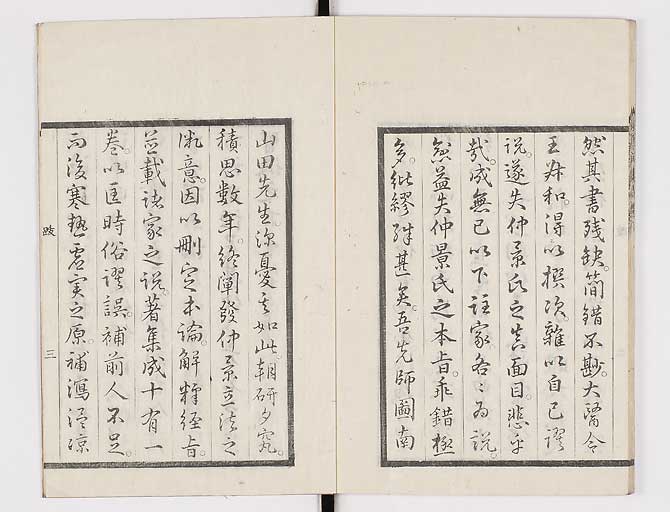 然其書残缺。簡錯不尠。大醫令
王叔和。得以撰次。雜以自己謬
説。遂失仲景氏之真面目。悲乎
哉。成無己以下註家。各〻為説。
愈益失仲景氏之本旨。乖錯極
多。紕繆殊甚矣。吾先師圖南
山田先生。深憂其如此。朝研夕究。
積思數年。終闡發仲景立法之
微意。因以刪定本論。解釋經旨。
並載諸家之説。著集成十有一
卷。以匡時俗謬誤。補前人不足。
而後寒熱虚実之原。補瀉温凉
跋
三